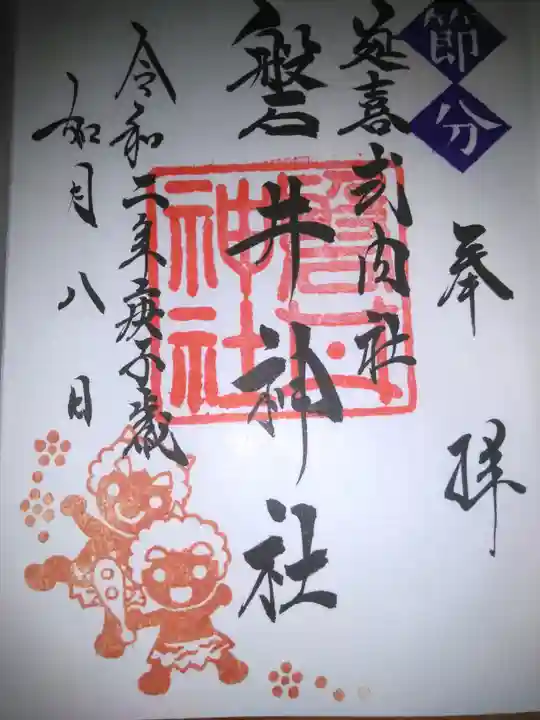 節分
奉拝
延喜式内社
磐井神社
磐井神社
令和二年庚子歳
如月八日